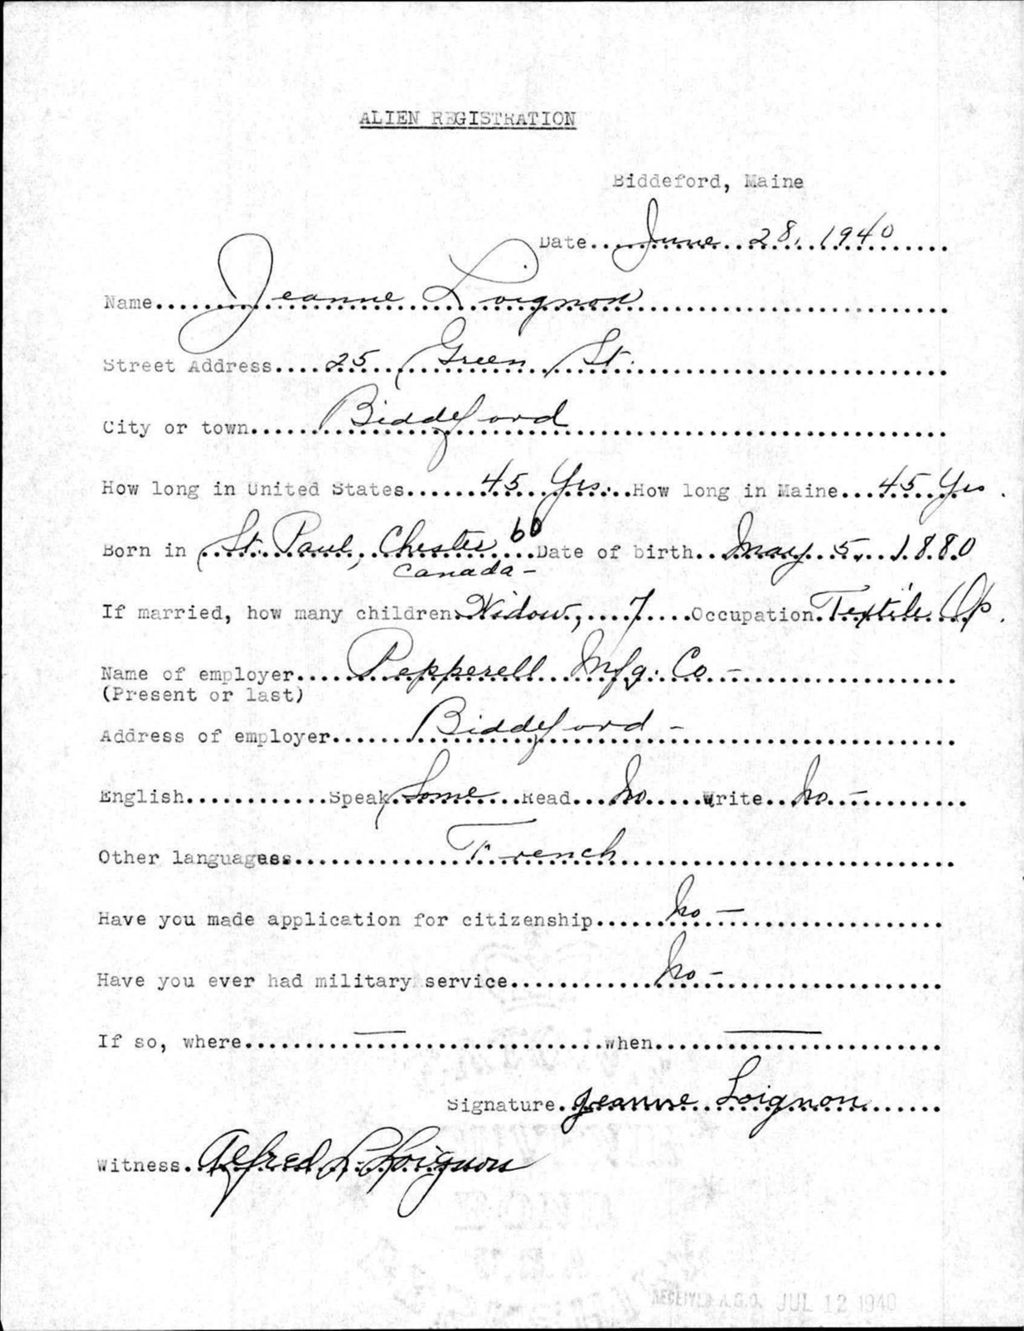 ALIEN REGISTRATION
Biddeford, Maine
Date June 28, 1940
Name Jeanne Loignon
Street Address 25 Green St.
City or town Biddeford
How long in United States 45 Yrs. How long in Maine 45 Yrs.
Born in St. Paul, Chester 60 Date of birth May 5, 1880
Canada -
If married, how many children Widow, 7 Occupation Textile Op.
Name of employer Pepperell Mfg. Co -
(Present or last)
Address of employer Biddeford -
English Speak Some Read No Write No -
Other languages French
Have you made application for citizenship No -
Have you ever had military service No -
If so, where — when —
Signature Jeanne Loignon
Witness Alfred L. Loignon
RECEIVED A.G.O. JUL 12 1940